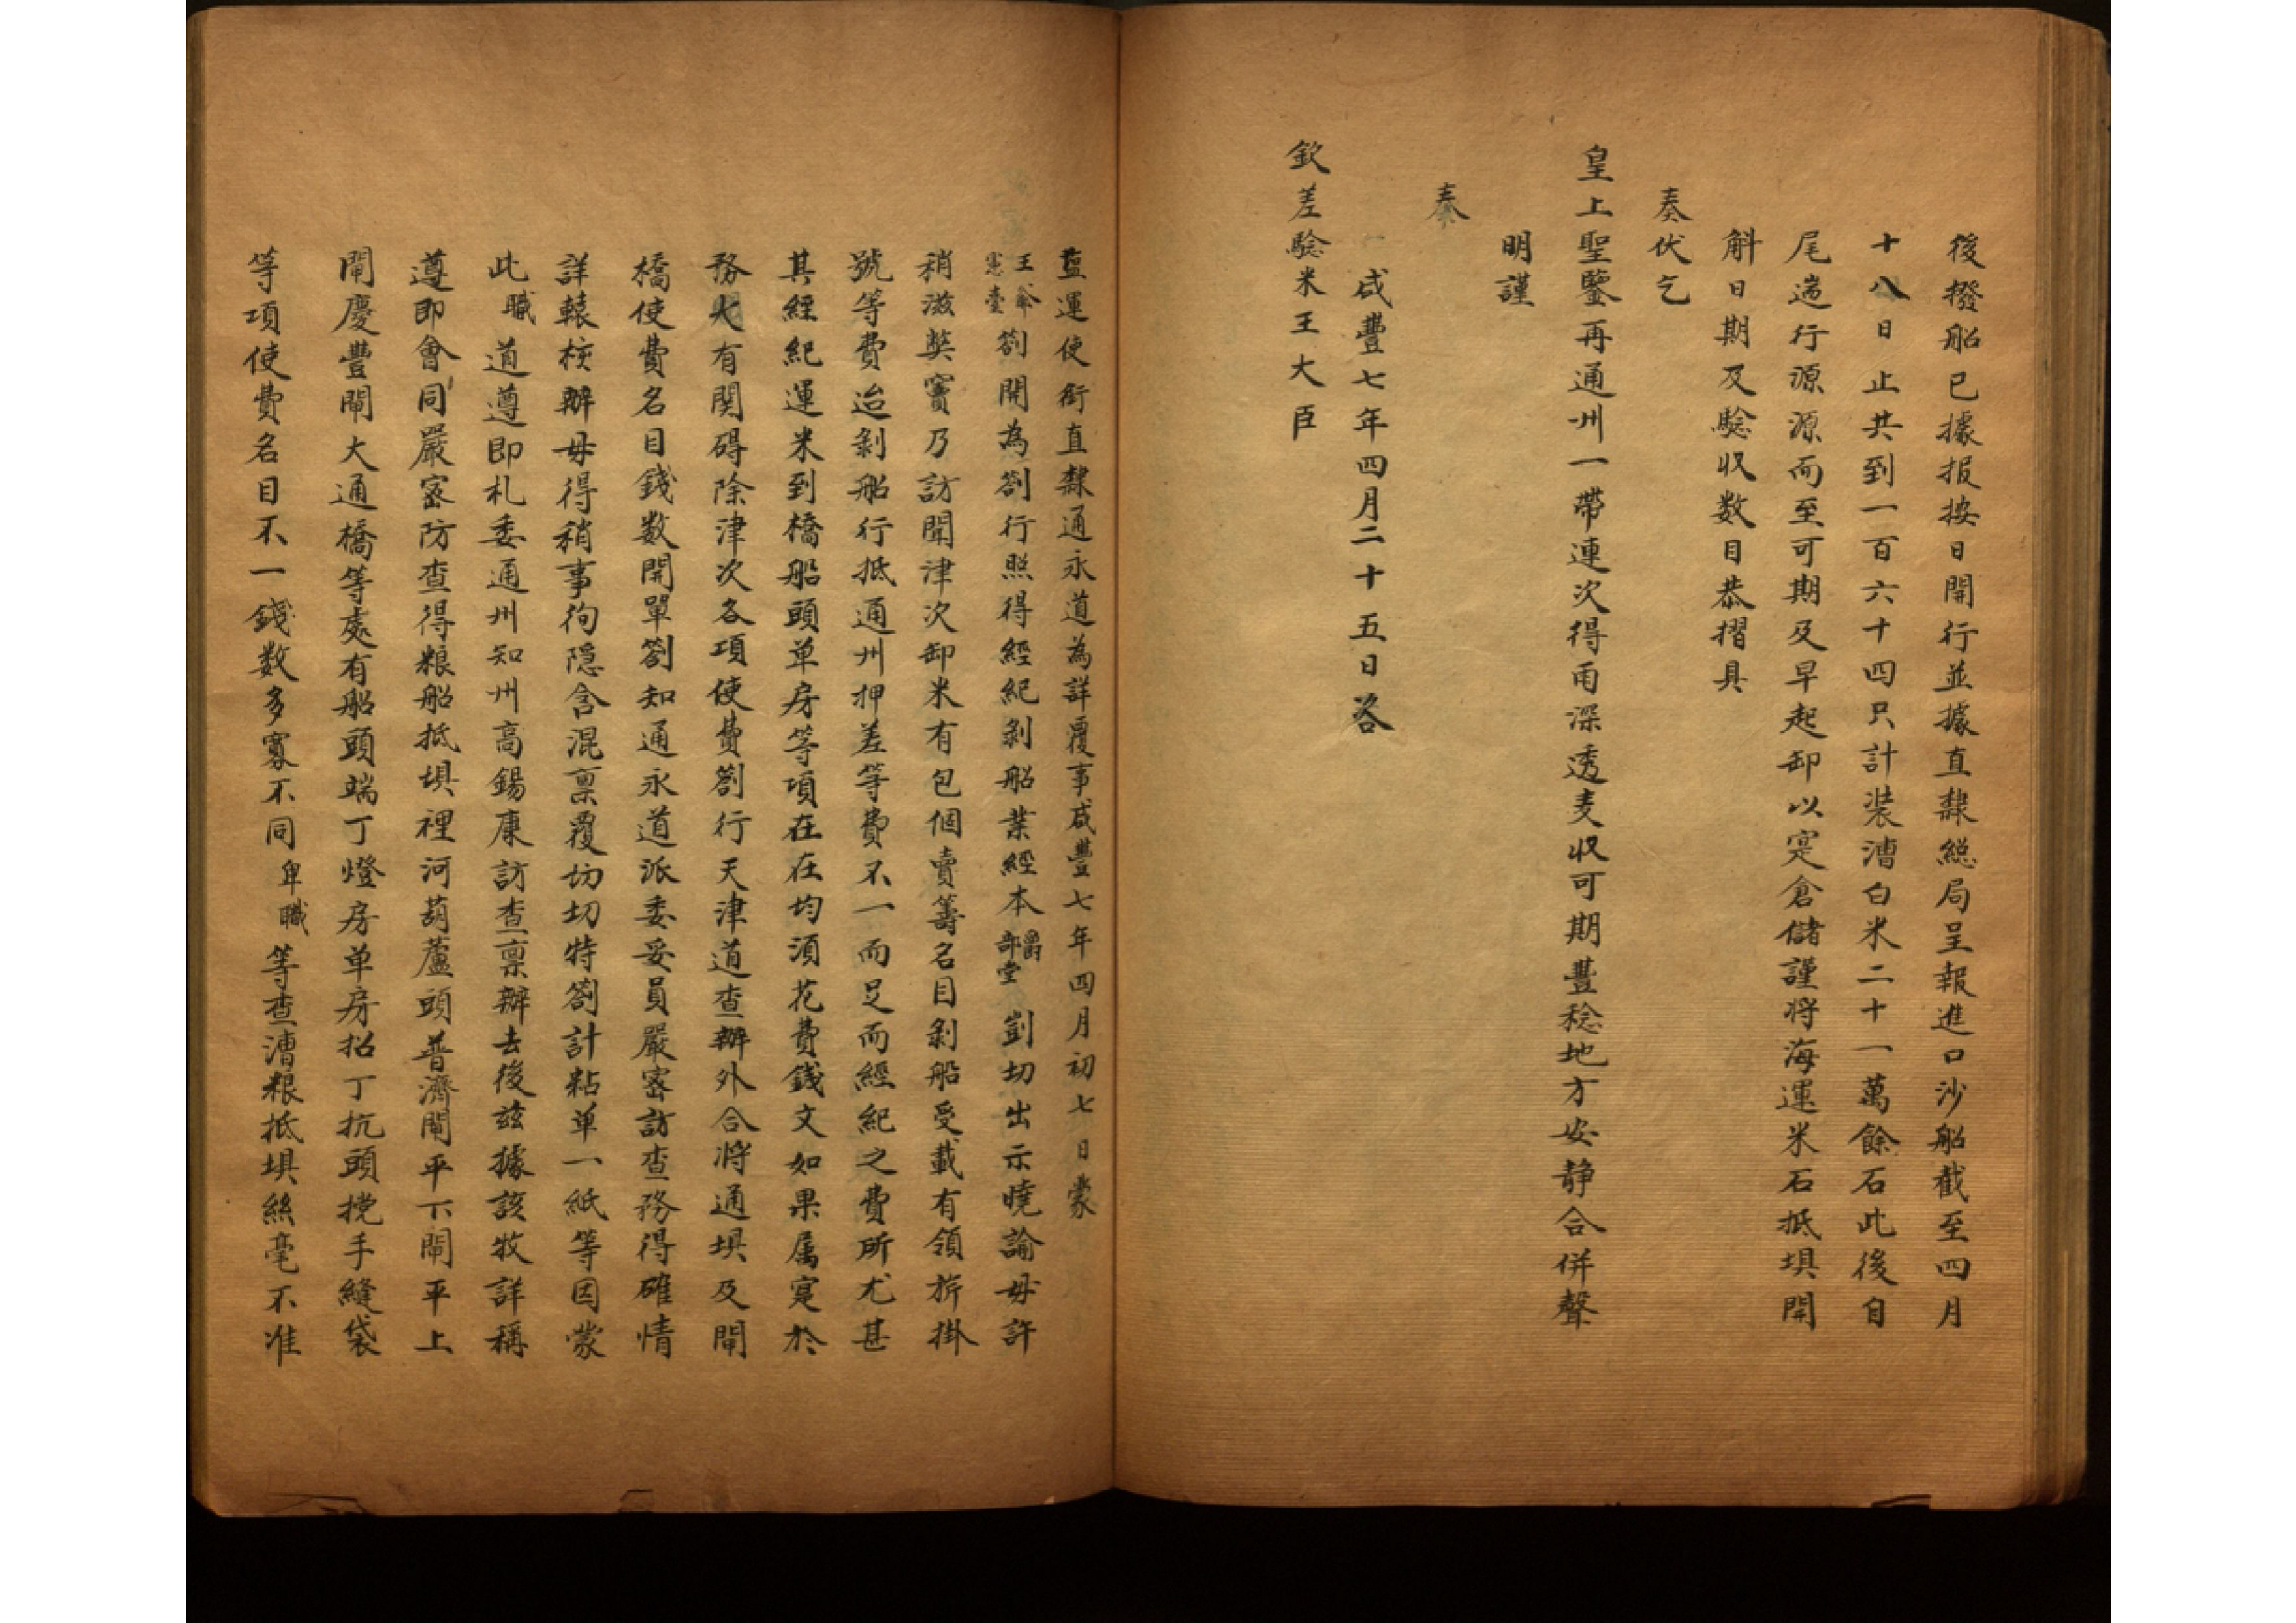 後撥船已據报按日開行並據直隸總局呈報進口沙船截至四月
十八日止共到一百六十四只計裝漕白米二十一萬餘石此後自
尾遄行源源而至可期及早起卸以寔倉儲謹將海運米石抵埧開
斛日期及驗收数目恭摺具
奏伏乞
皇上聖鑒再通州一帶連次得雨深透麦収可期豐稔地方安静合併聲
明謹
奏
咸豐七年四月二十五日咨
欽差驗米王大臣
蓝運使銜直隸通永道為詳覆事咸豐七年四月初七日蒙
王爺憲臺劄開為劄行照得經紀剝船業經本爵部堂剴切出示曉諭毋許
稍滋獘竇乃訪聞津次卸米有包個賣籌名目剝船受載有領旂掛
號等費迨剝船行抵通州押差等費不一而足而經紀之費所尤甚
其經紀運米到橋船頭单房等項在在均湏花費錢文如果属寔於
務大有関碍除津次各項使費劄行天津道查辦外合將通埧及閘
橋使費名目錢数開單劄知通永道派委妥員嚴宻訪查務得確情
詳轅核辦毋得稍事徇隐含混禀覆切切特劄計粘单一紙等因蒙
此職道遵即札委通州知州高錫康訪查禀辦去後兹據該牧詳稱
遵即會同嚴宻防查得粮船抵埧裡河葫蘆頭普濟閘平下閘平上
閘慶豐閘大通橋等處有船頭端丁燈房单房招丁抗頭挠手縫袋
等項使費名目不一錢数多寡不同卑職等查漕粮抵埧絲毫不准